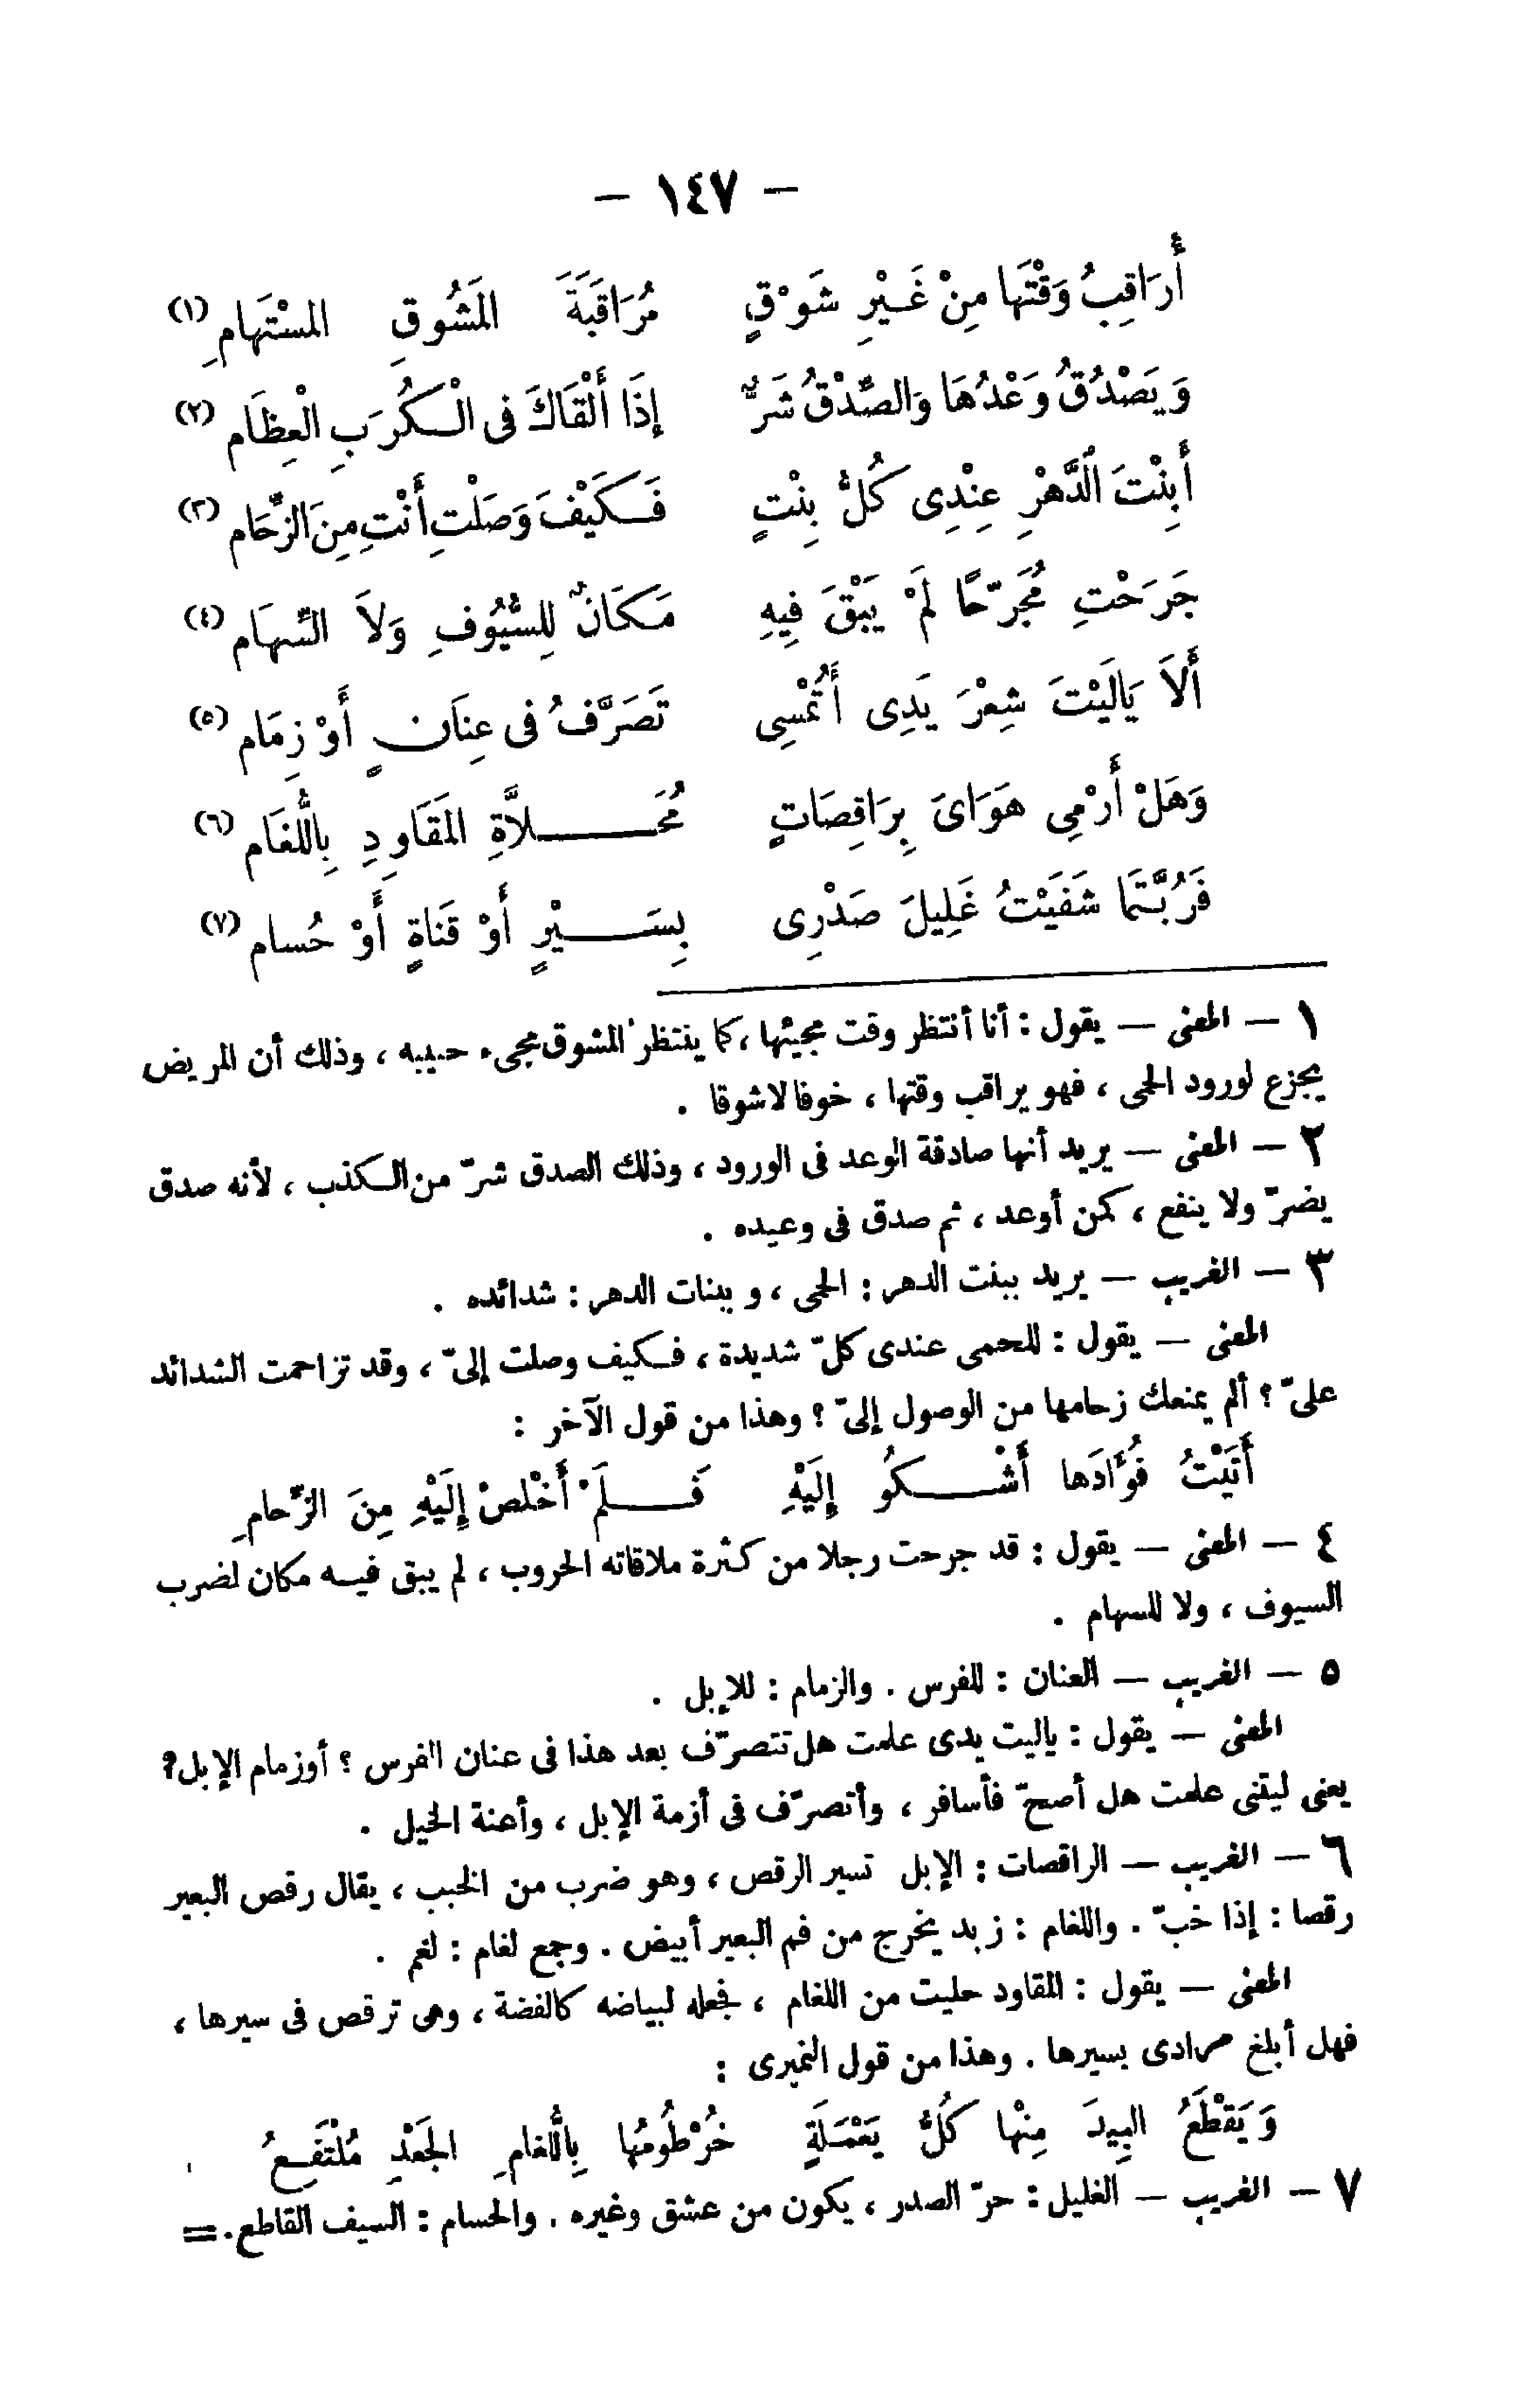 — ١٤٧ —
أُرَاقِبُ وَقْتَهَا مِنْ غَيْرِ شَوْقٍ مُرَاقَبَةَ المَشُوقِ المسْتَهَامِ (١)
وَيَصْدُقُ وَعْدُهَا وَالصِّدْقُ شَرٌّ إِذَا أَلْقَاكَ فى الْكُرَبِ الْعِظَام (٢)
أَبِنْتَ الدَّهْرِ عِنْدِى كُلُّ بِنْتٍ فَكَيْفَ وَصَلْتِ أَنْتِ مِنَ الزِّحَام (٣)
جَرَحْتِ مُجَرَّحًا لَمْ يَبْقَ فِيهِ مَكَانٌ لِلسُّيُوفِ وَلاَ السِّهَام (٤)
أَلاَ يَالَيْتَ شِعْرَ يَدِى أَتُمْسِى تَصَرَّفُ فى عِنَانٍ أَوْ زِمَام (٥)
وَهَلْ أَرْمِى هَوَاىَ بِرَاقِصَاتٍ مُحَلاَّةِ المَقَاوِدِ بِاللُّغَام (٦)
فَرُبَّتَمَا شَفَيْتُ غَلِيلَ صَدْرِى بِسَيْرٍ أَوْ قَنَاةٍ أَوْ حُسام (٧)
١ — المعنى — يقول : أنا أنتظر وقت مجيئها ، كما ينتظر المشوق مجىء حبيبه ، وذلك أن المريض
يجزع لورود الحمى ، فهو يراقب وقتها ، خوفا لا شوقا .
٢ — المعنى — يريد أنها صادقة الوعد فى الورود ، وذلك الصدق شرّ من الكذب ، لأنه صدق
يضرّ ولا ينفع ، كمن أوعد ، ثم صدق فى وعيده .
٣ — الغريب — يريد ببنت الدهر : الحمى ، و ببنات الدهر : شدائده .
المعنى — يقول : للحمى عندى كلّ شديدة ، فكيف وصلت إلىّ ، وقد تزاحمت الشدائد
علىّ ؟ ألم يمنعك زحامها من الوصول إلىّ ؟ وهذا من قول الآخر :
أَتَيْتُ فُؤَادَها أَشْكُو إِلَيْهِ فَلَمْ أَخْلصْ إِلَيْهِ مِنَ الزِّحامِ
٤ — المعنى — يقول : قد جرحت رجلا من كثرة ملاقاته الحروب ، لم يبق فيه مكان لضرب
السيوف ، ولا للسهام .
٥ — الغريب — العنان : للفرس . والزمام : للإبل .
المعنى — يقول : ياليت يدى علمت هل تتصرّف بعد هذا فى عنان الفرس ؟ أو زمام الإبل ؟
يعنى ليتنى علمت هل أصحّ فأسافر ، وأتصرّف فى أزمة الإبل ، وأعنة الخيل .
٦ — الغريب — الراقصات : الإبل تسير الرقص ، وهو ضرب من الخبب ، يقال رقص البعير
رقصا : إذا خبّ . واللغام : زبد يخرج من فم البعير أبيض . وجمع لغام : لغم .
المعنى — يقول : المقاود حليت من اللغام ، فجعله لبياضه كالفضة ، وهى ترقص فى سيرها ،
فهل أبلغ مرادى بسيرها . وهذا من قول النميرى :
وَيَقْطَعُ البِيدَ مِنْها كُلُّ يَعْمَلَةٍ خُرْطُومُها بِاللُّغامِ الجَعْدِ مُلْتَفِعُ
٧ — الغريب — الغليل : حرّ الصدر ، يكون من عشق وغيره . والحسام : السيف القاطع . =